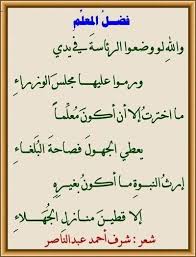 فضل المعلم
والله لو وضعوا الرئاسة في يدي
ورموا عليها مجلس الوزراء
ما اخترت إلا أن أكون معلماً
يعطي الجهول فصاحة البلغاء
إرث النبوة ما أكون بغيره
إلا قطين منازل الجهلاء
شعر : شرف أحمد عبدالناصر